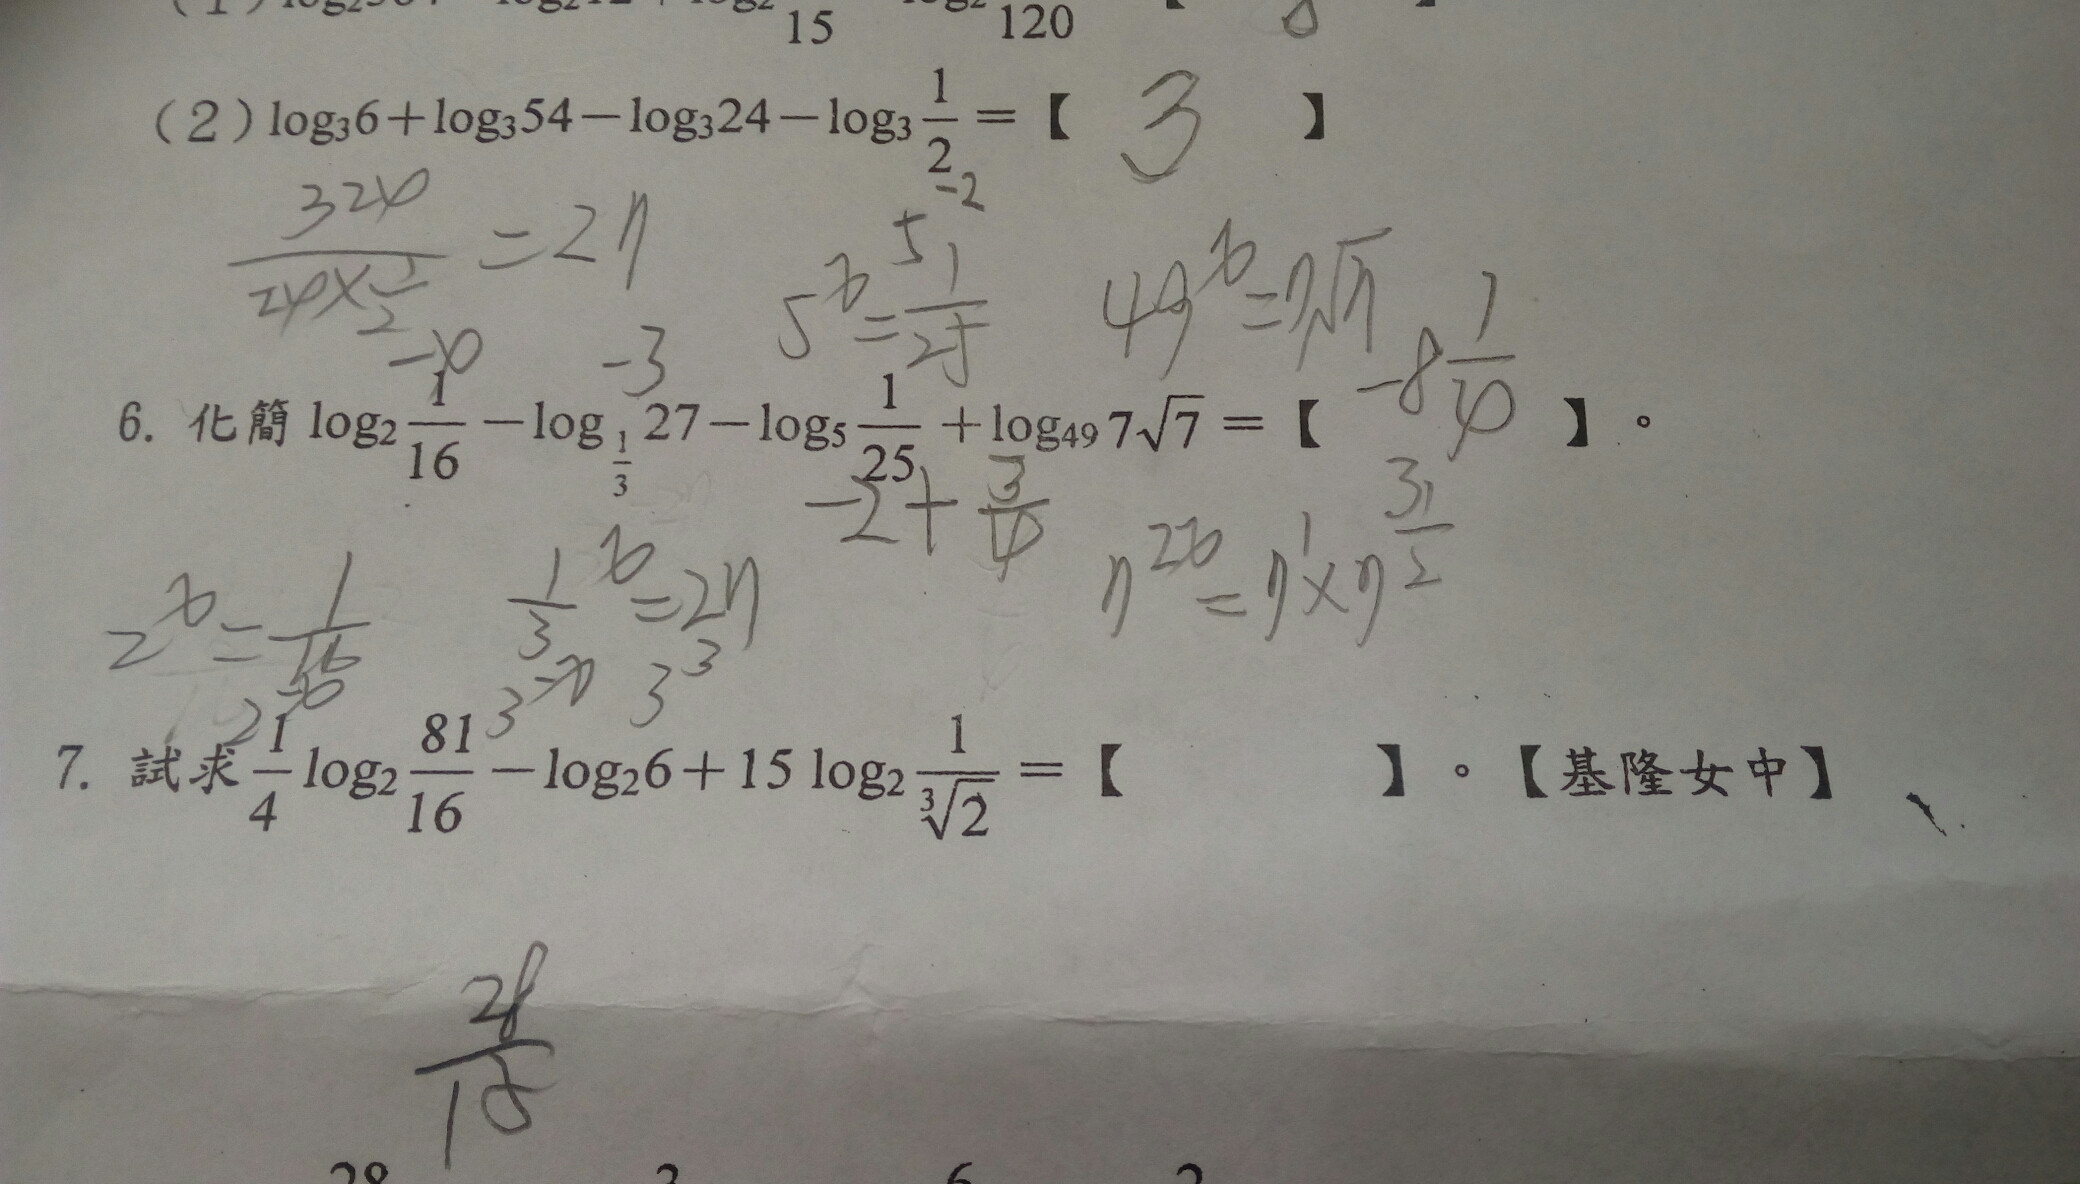 15 120
(2) log₃6+log₃54−log₃24−log₃ 1/2 =【 3 】
324/(24×1/2) = 27
5^x = 1/25 5^-2
49^x = 7√7
-4 -3
6. 化簡 log₂ 1/16 −log_{1/3} 27−log₅ 1/25 +log₄₉ 7√7 =【 -8 1/4 】。
-2+3/4
2^x = 1/16
2^-4
1/3^x = 27
3^-x 3^3
7^2x = 7^1×7^1/2
7. 試求 1/4 log₂ 81/16 −log₂6+15 log₂ 1/∛2 =【 】。【基隆女中】
28 3 6 2